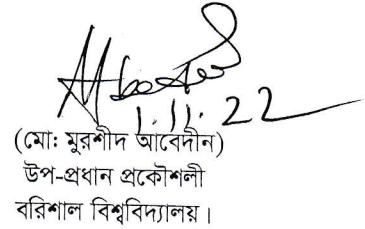 1.11.22
(মো: মুরশীদ আবেদীন)
উপ-প্রধান প্রকৌশলী
বরিশাল বিশ্ববিদ্যালয়।